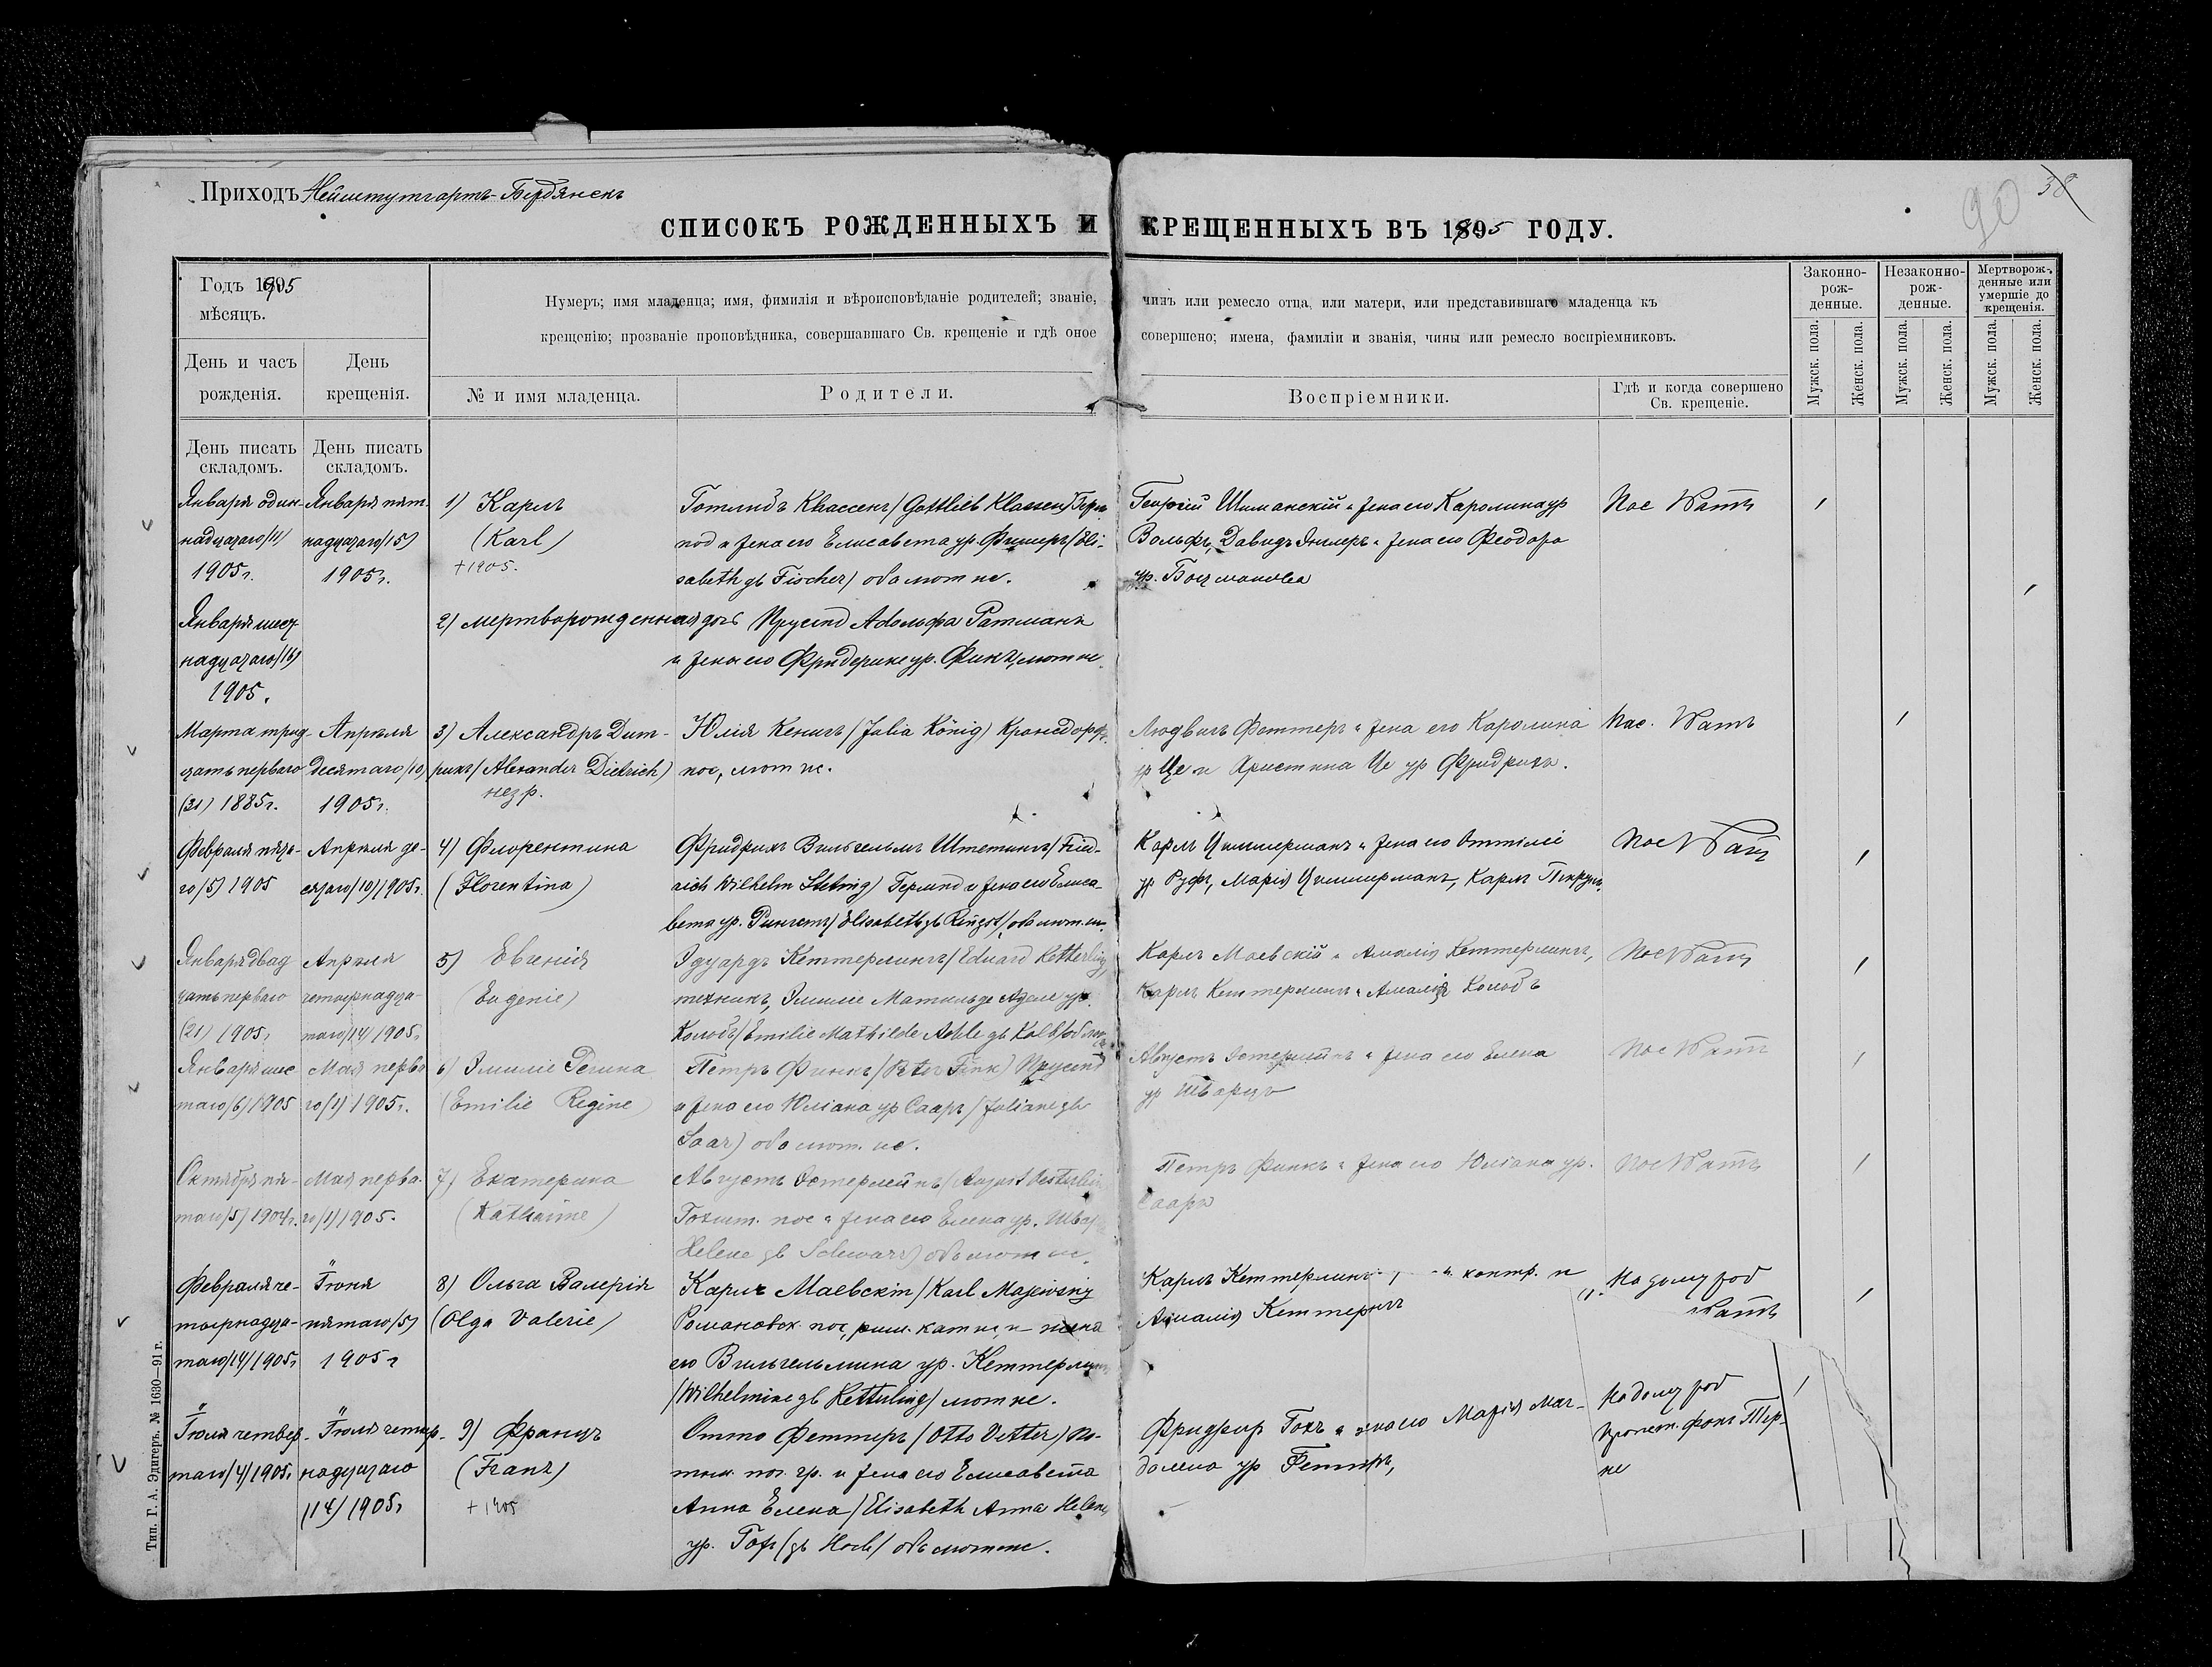 Приходъ Нейштутгартъ-Бердянскъ
90
38
СПИСОКЪ РОЖДЕННЫХЪ И КРЕЩЕННЫХЪ ВЪ 1905 ГОДУ.
Годъ 1905
мѣсяцъ.
День и часъ
рожденія.
День
крещенія.
Нумеръ; имя младенца; имя, фимилія и вѣроисповѣданіе родителей; званіе, чинъ или ремесло отца, или матери, или представившаго младенца къ
крещенію; прозваніе проповѣдника, совершавшаго Св. крещеніе и гдѣ оное совершено; имена, фамиліи и званія, чины или ремесло воспріемниковъ.
№ и имя младенца.
Родители.
Воспріемники.
Гдѣ и когда совершено
Св. крещеніе.
Законно-
рож-
денные.
Незаконно-
рож-
денные.
Мертворож-
денные или
умершіе до
крещенія.
Мужск. пола.
Женск. пола.
Мужск. пола.
Женск. пола.
Мужск. пола.
Женск. пола.
День писать
складомъ.
День писать
складомъ.
Января один-
надцатаго (11)
1905г.
Января пят-
надцатаго (15)
1905г.
1) Карлъ
(Karl)
+1905.
Готлибъ Классенъ (Gottlieb Klassen)
и жена его Елисавета ур. Фишеръ (Eli-
sabeth gb Fischer) оба лют ис.
Георгій Шиманскій и жена его Каролина ур
Вольфъ, Давидъ и жена его Феодора
ур.
Пос
Января шест
надцатаго (16)
1905.
2) мертворожденная дочь Адольфа Ратманъ
и жена его Фридерике ур. Финкъ, лют ис.
Марта трид-
цать перваго
(31) 1885г.
Апрѣля
десятаго (10)
1905г.
3) Александръ Дит-
рихъ (Alexander Dietrich)
незр.
Юлія Кенигъ (Julia König) Кронсдорф.
пос, лют ис.
Людвигъ Феттеръ и жена его Каролина
ур Це и Христина Це ур Фридрихъ.
Пос.
Февраля пята-
го (5) 1905
Апрѣля де-
сятаго (10) 1905г.
4) Флорентина
(Florentina)
Фридрихъ Вильгельмъ Штетингъ (Fried-
rich Wilhelm Steting) и жена его Елиса-
вета ур. Рингстъ (Elisabeth gb Reingst) оба лют. ис.
Карлъ Циммерманъ и жена его Оттиліе
ур Руфъ, Марія Циммерманъ, Карлъ
Пос
Января двад
цать перваго
(21) 1905г
Апрѣля
четырнадца-
таго (14) 1905г.
5) Евгенія
(Eugenie)
Эдуардъ Кеттерлингъ (Eduard Ketterling)
техникъ, Эмиліе Матильде Аделе ур.
Колобъ (Emilie Mathilde Adele gb Kolb)
Карлъ Маевскій и Амалія Кеттерлингъ,
Карлъ Кеттерлингъ и Амалія Колобъ
Пос
Января шес
таго (6) 1905
Мая перва
го (1) 1905г.
6) Эмиліе Регина
(Emilie Regine)
Петръ Финкъ (Peter Fink)
и жена его Юліана ур Сааръ (Juliane gb
Saar) оба лют. ис.
Августъ Эстерлейнъ и жена его Елена
ур Шварцъ
Пос
Октября пя-
таго (5) 1904г.
Мая перва-
го (1) 1905.
7) Екатерина
(Katharine)
Августъ Эстерлейнъ (August Oesterlein)
пос и жена его Елена ур. Шварц
Helene gb Schwarz) оба лют ис.
Петръ Финкъ и жена его Юліана ур.
Сааръ
Пос
Февраля че-
тырнадца-
таго (14) 1905г
Іюня
пятаго (5)
1905г
8) Ольга Валерія
(Olga Valerie)
Карлъ Маевскій (Karl Majewsky)
Романовск. пос, рим. кат ис, и жена
его Вильгельмина ур. Кеттерлингъ
(Wilhelmine gb Ketterling) лют ис.
Карлъ Кеттерлингъ,
Амалія Кеттерлингъ
На дому род
Іюля четвер-
таго (4) 1905г
Іюля четыр-
надцатаго
(14) 1905г
9) Францъ
(Franz)
+1905
Отто Феттеръ (Otto Vetter)
и жена его Елисавета
Анна Елена (Elisabeth Anna Helene
ур. Гохъ (gb Hoch) оба лют ис.
Фридрихъ Гохъ и жена его Марія Маг-
далена ур
На дому род
Тип. Г. А. Эдигеръ. № 1630—91 г.